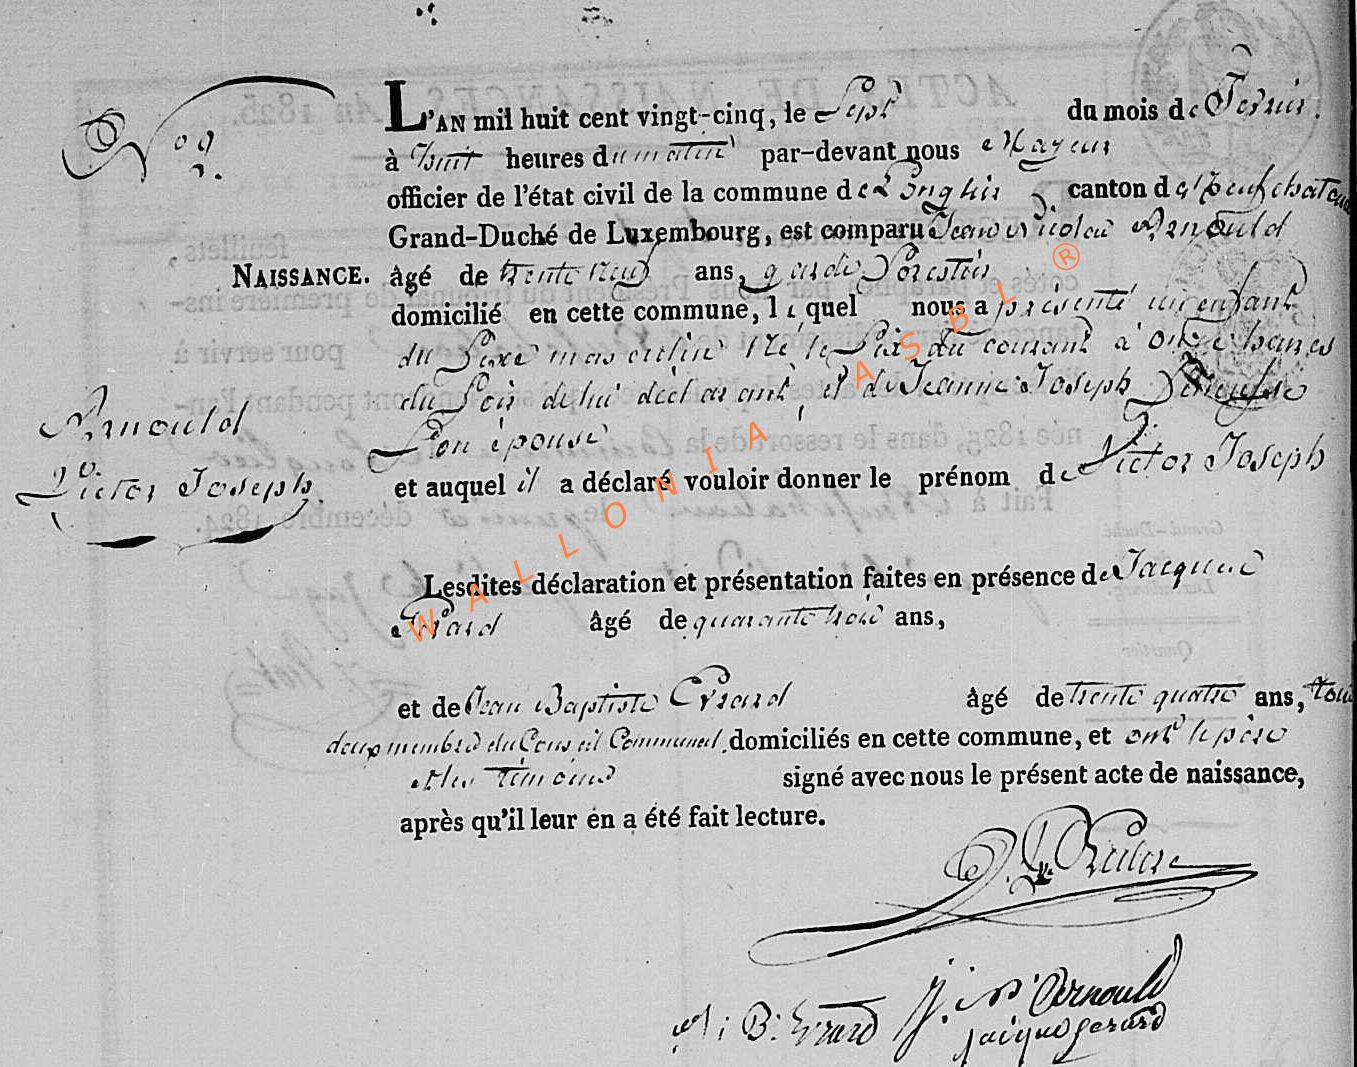 N.° 9
L'AN mil huit cent vingt-cinq, le Sept du mois de Fevrier.
à huit heures du matin par-devant nous Mayeur
officier de l'état civil de la commune de Longlier canton de Neufchateau
Grand-Duché de Luxembourg, est comparu Jean Nicolas Arnould
NAISSANCE. âgé de trente neuf ans, garde Forestier
domicilié en cette commune, le quel nous a présenté un enfant
du Sexe masculin Né le Six du courant à onze heures
du Soir de lui déclarant, et de Jeanne Joseph
Son épouse
et auquel il a déclaré vouloir donner le prénom de Victor Joseph
Arnould
Victor Joseph.
Lesdites déclaration et présentation faites en présence de Jacques
Gerard âgé de quarante trois ans,
et de Jean Baptiste Evrard âgé de trente quatre ans, tous
deux membres du Conseil Communal, domiciliés en cette commune, et ont le père
et les témoins signé avec nous le présent acte de naissance,
après qu'il leur en a été fait lecture.
J: B: Evrard
J: N: Arnould
jacque gerard
WALLONIA ASBL ®